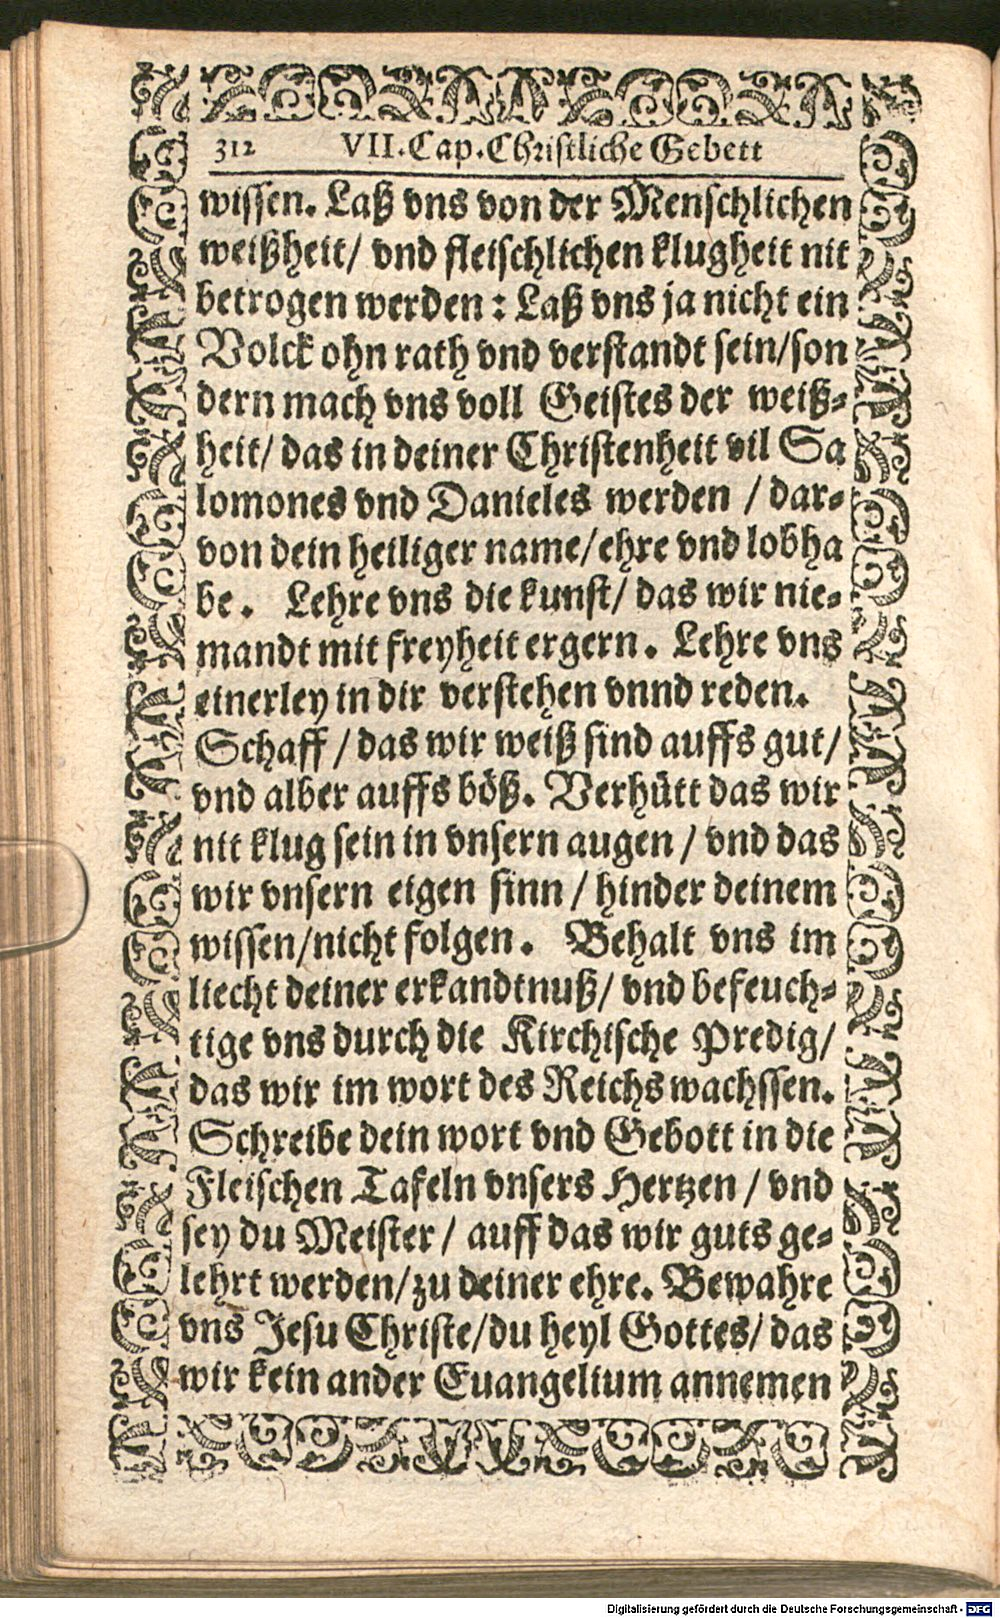 312 VII. Cap. Christliche Gebett
wissen. Laß vns von der Menschlichen
weißheit/ vnd fleischlichen klugheit nit
betrogen werden: Laß vns ja nicht ein
Volck ohn rath vnd verstandt sein/son
dern mach vns voll Geistes der weiß-
heit/ das in deiner Christenheit vil Sa
lomones vnd Danieles werden / dar-
von dein heiliger name/ehre vnd lobha
be. Lehre vns die kunst/ das wir nie-
mandt mit freyheit ergern. Lehre vns
einerley in dir verstehen vnnd reden.
Schaff / das wir weiß sind auffs gut/
vnd alber auffs böß. Verhütt das wir
nit klug sein in vnsern augen / vnd das
wir vnsern eigen sinn / hinder deinem
wissen/nicht folgen. Behalt vns im
liecht deiner erkandtnuß/ vnd befeuch-
tige vns durch die Kirchische Predig/
das wir im wort des Reichs wachssen.
Schreibe dein wort vnd Gebott in die
Fleischen Tafeln vnsers Hertzen / vnd
sey du Meister / auff das wir guts ge-
lehrt werden/zu deiner ehre. Bewahre
vns Jesu Christe/du heyl Gottes/ das
wir kein ander Euangelium annemen
Digitalisierung gefördert durch die Deutsche Forschungsgemeinschaft - DFG